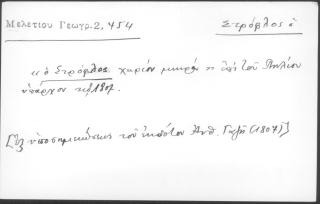 Μελετίου Γεωγρ. 2, 454
Στρόβλος ὁ
"ὁ Στρόβλος, χωρίον μικρόν ἐπί τοῦ Πηλίου
ὑπάρχον
[ἐξ ὑποσημειώσεως τοῦ ἐκδότου Ἀνθ. Γαζῆ (1807)]